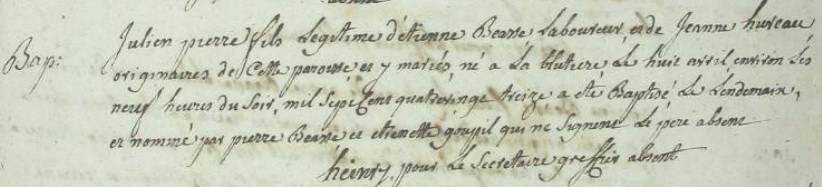 Bap:
Julien pierre fils Legitime d'etienne Beasse Laboureur, et de Jeanne hureau
originaires de Cette paroisse et y mariés, né a La bluterie Le huit avril environ Les
neuf heures du Soir, mil Sept Cent quatrevingt treize a été Baptisé Le Lendemain,
et nommé par pierre Beasse et etienette goupil qui ne Signent Le pere absent
heinry, pour Le Secretaire greffier absent